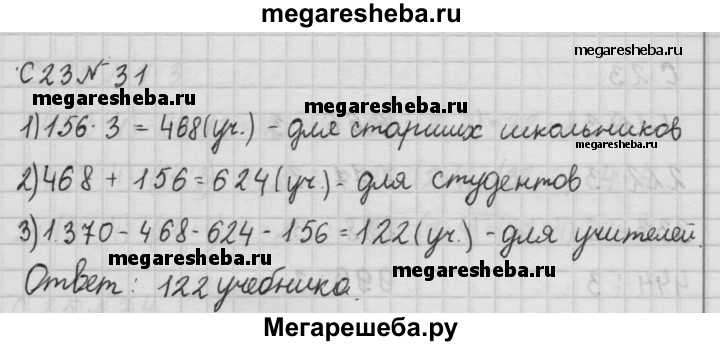 megaresheba.ru
megaresheba.ru
С 23 № 31
megaresheba.ru
1) 156 · 3 = 468 (уч.) - для старших школьников
megaresheba.ru
2) 468 + 156 = 624 (уч.) - для студентов
3) 1.370 - 468 - 624 - 156 = 122 (уч.) - для учителей.
megaresheba.ru
megaresheba.ru
Ответ: 122 учебника.
Мегарешеба.ру